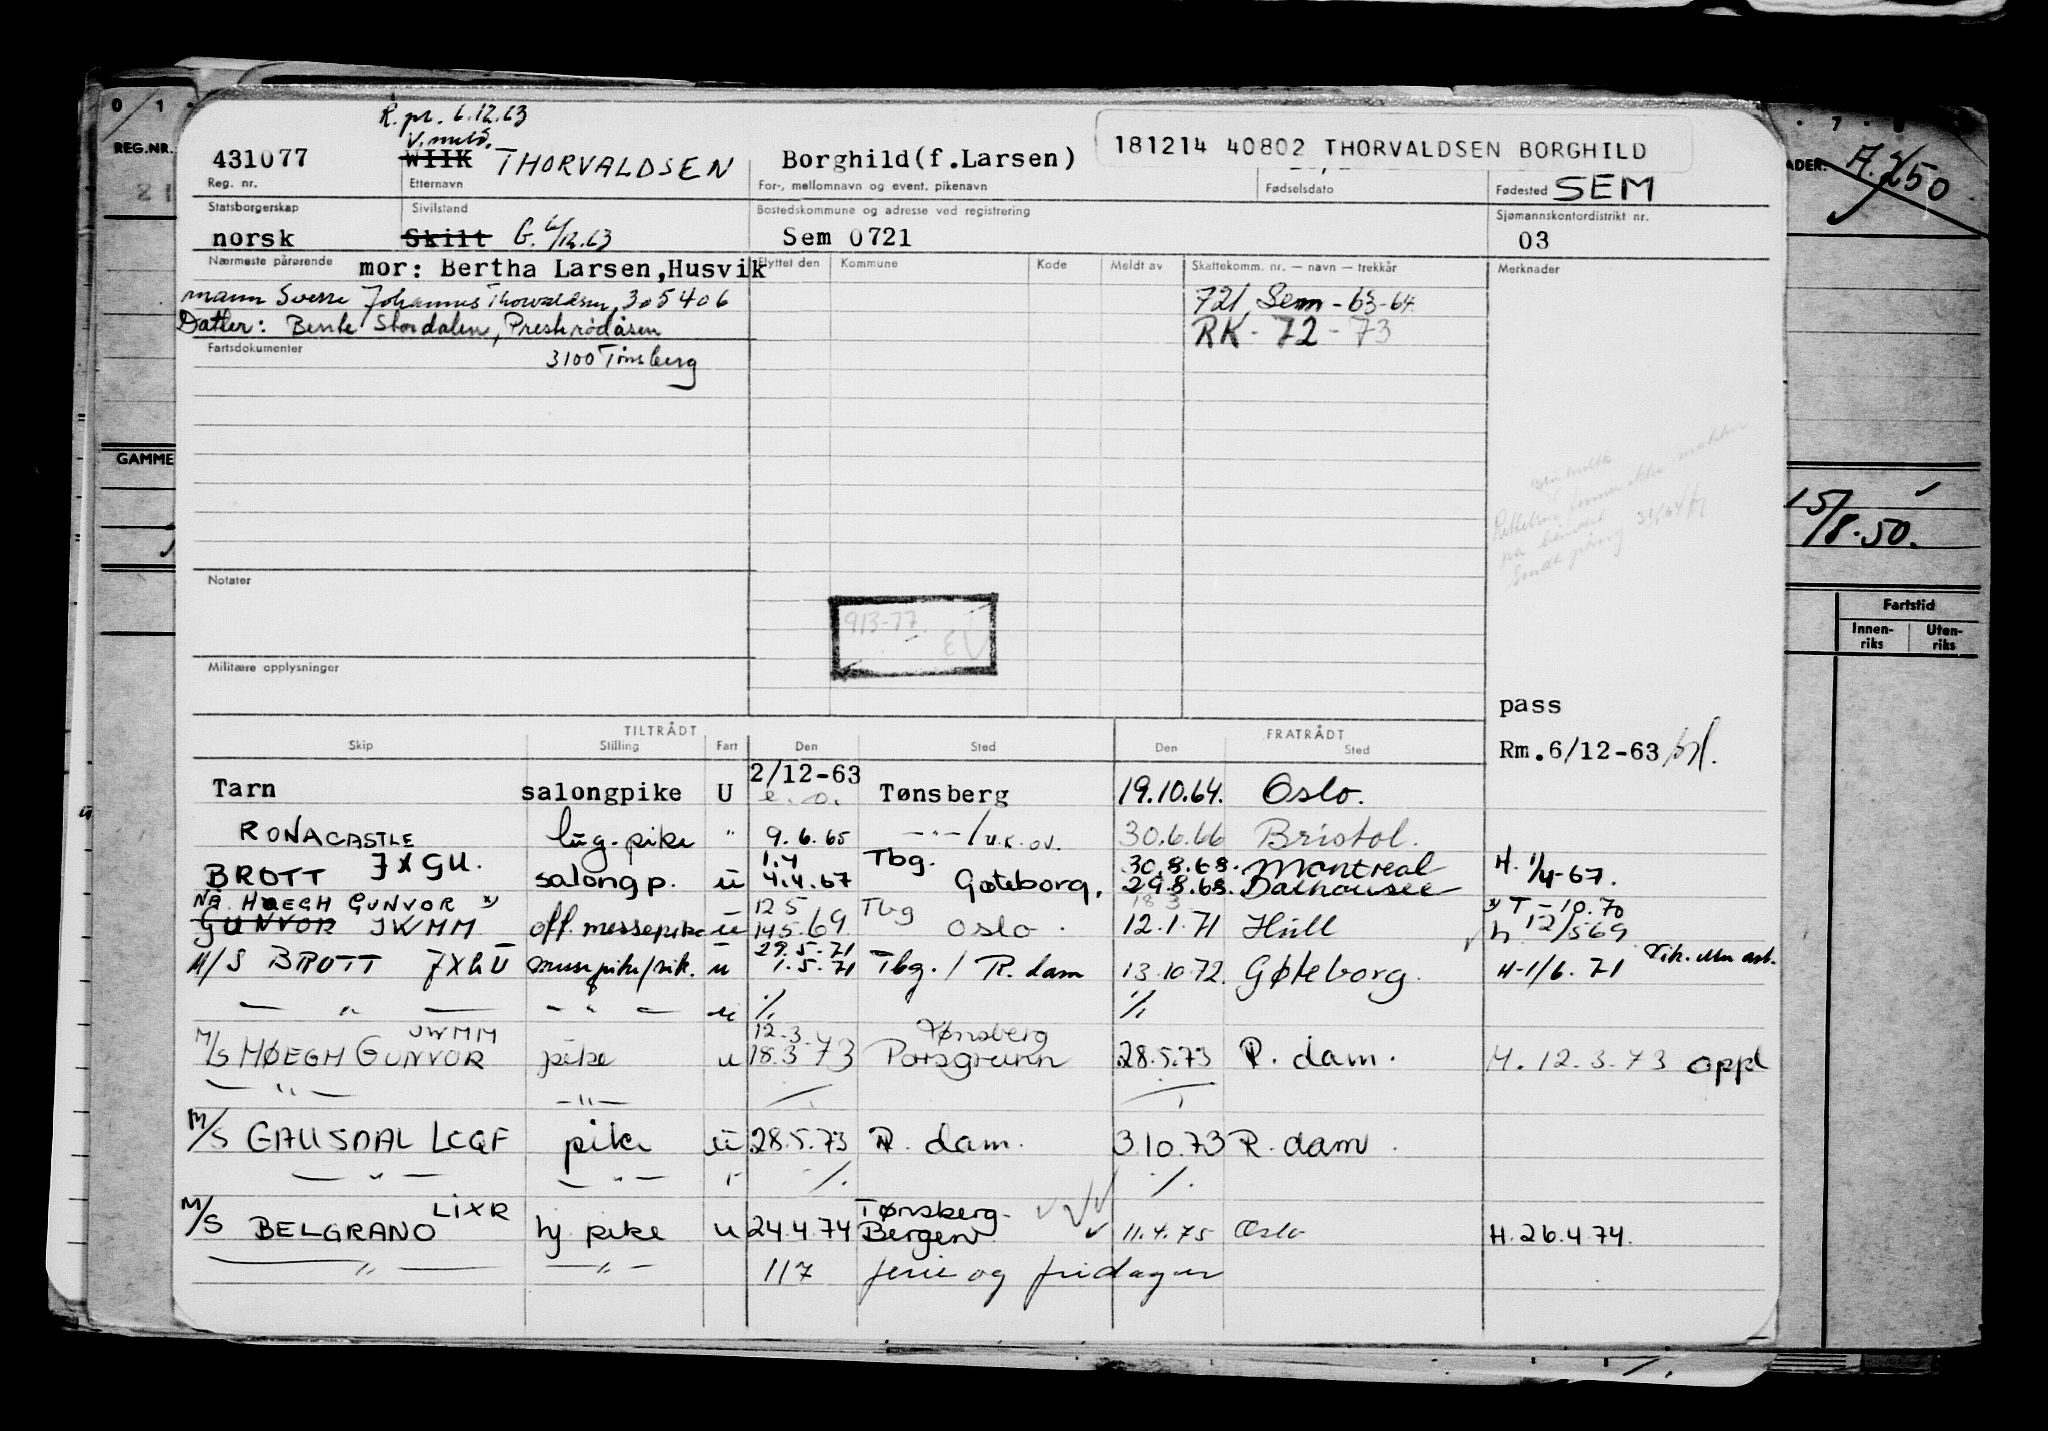 R. pl. 6.12.63
V. meld.
431077 WIIK THORVALDSEN Borghild(f.Larsen) 181214 40802 THORVALDSEN BORGHILD
Reg. nr. Etternavn For-, mellomnavn og event. pikenavn Fødselsdato Fødested SEM
Statsborgerskap Sivilstand Bostedskommune og adresse ved registrering Sjømannskontordistrikt nr.
norsk Skilt G. 6/12.63 Sem 0721 03
Nærmeste pårørende mor: Bertha Larsen,Husvik Flyttet den Kommune Kode Meldt av Skattekomm. nr. — navn — trekkår Merknader
mann Sverre Johannes Thorvaldsen, 305406 721 Sem - 63-64
Datter: Bente Stordalen, Presterødåsen RK - 72 - 73
Fartsdokumenter 3100 Tønsberg
Notater
913-77.
Militære opplysninger
pass
TILTRÅDT FRATRÅDT
Skip Stilling Fart Den Sted Den Sted
Rm.6/12-63
2/12-63
Tarn salongpike U e.o. Tønsberg 19.10.64. Oslo.
RONACASTLE lug.pike " 9.6.65 —"—/u.k.ov. 30.6.66 Bristol.
JXGU. 1.4 Tbg. 30.8.68. Montreal
BROTT salongp. u 4.4.67 Gøteborg. 29.8.68. Dalhousie H. 1/4-67.
NÅ HØEGH GUNVOR x) 12.5 Tbg 18.3 x) T-10.70
GUNVOR JWMM off.messepike u 14.5.69 Oslo. 12.1.71 Hull h 12/569
29.5.71
M/S BROTT JXGU messepike/vik. u 1.5.71 Tbg. / R.dam 13.10.72. Gøteborg. H-1/6.71
— " — — " — u % %
JWMM 12.3. Tønsberg
M/S HØEGH GUNVOR pike u 18.3 73 Porsgrunn 28.5.73 R. dam. H. 12.3.73 oppl
— " — — " —
M/S GAUSDAL LCQF pike u 28.5.73 R. dam. 3.10.73 R. dam.
— " — — " — " % %
LIXR Tønsberg-
M/S BELGRANO hj.pike u 24.4.74 Bergen 11.4.75 Oslo H.26.4.74.
— " — — " — 117 ferie og fridager
REG.NR.
GAMME
A. 2/50
15/8.50.
Fartstid
Innen-riks Uten-riks